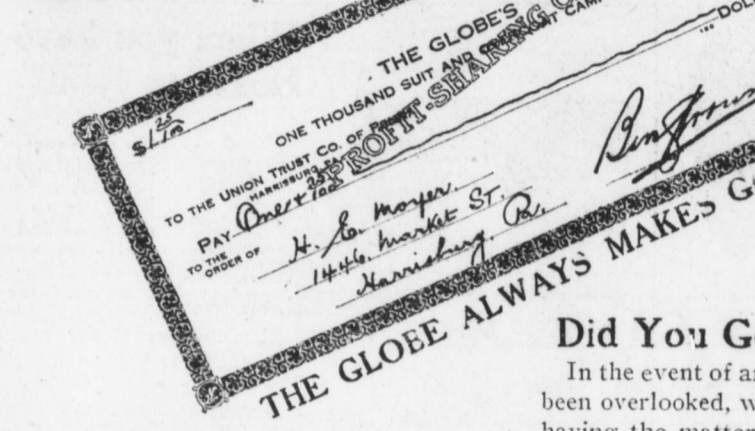 THE GLOBE'S
ONE THOUSAND SUIT AND
PROFIT-SHARING
DOL
$1.25/100
TO THE UNION TRUST CO. OF PENN'A
HARRISBURG, PA.
PAY One & 25/100
TO THE ORDER OF H. E. Moyer.
1446. Market St.
Harrisburg, Pa.
THE GLOBE ALWAYS MAKES G
Did You G
In the event of a
been overlooked, w
having the matter